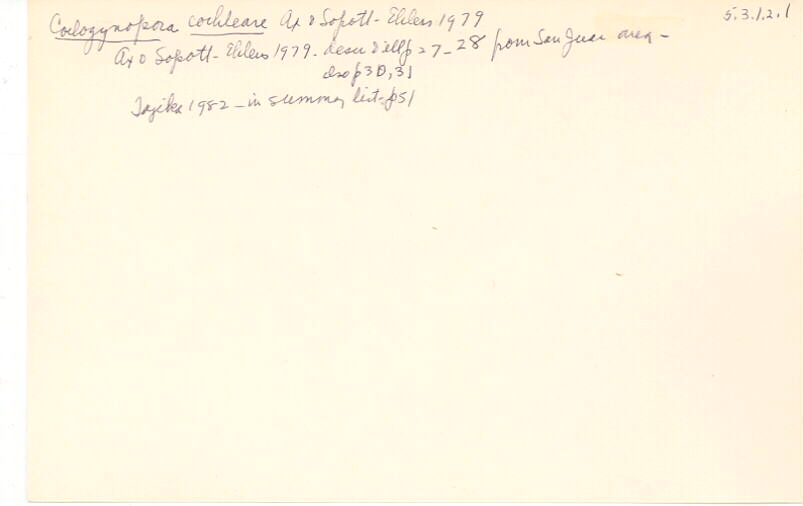 Coelogynopora cochleare Ax & Sopott-Ehlers 1979 5.3.1.2.1
Ax & Sopott-Ehlers 1979. descr & ill p 27-28 from San Juan area -
also p 30, 31
Tajika 1982 - in summary list - p51